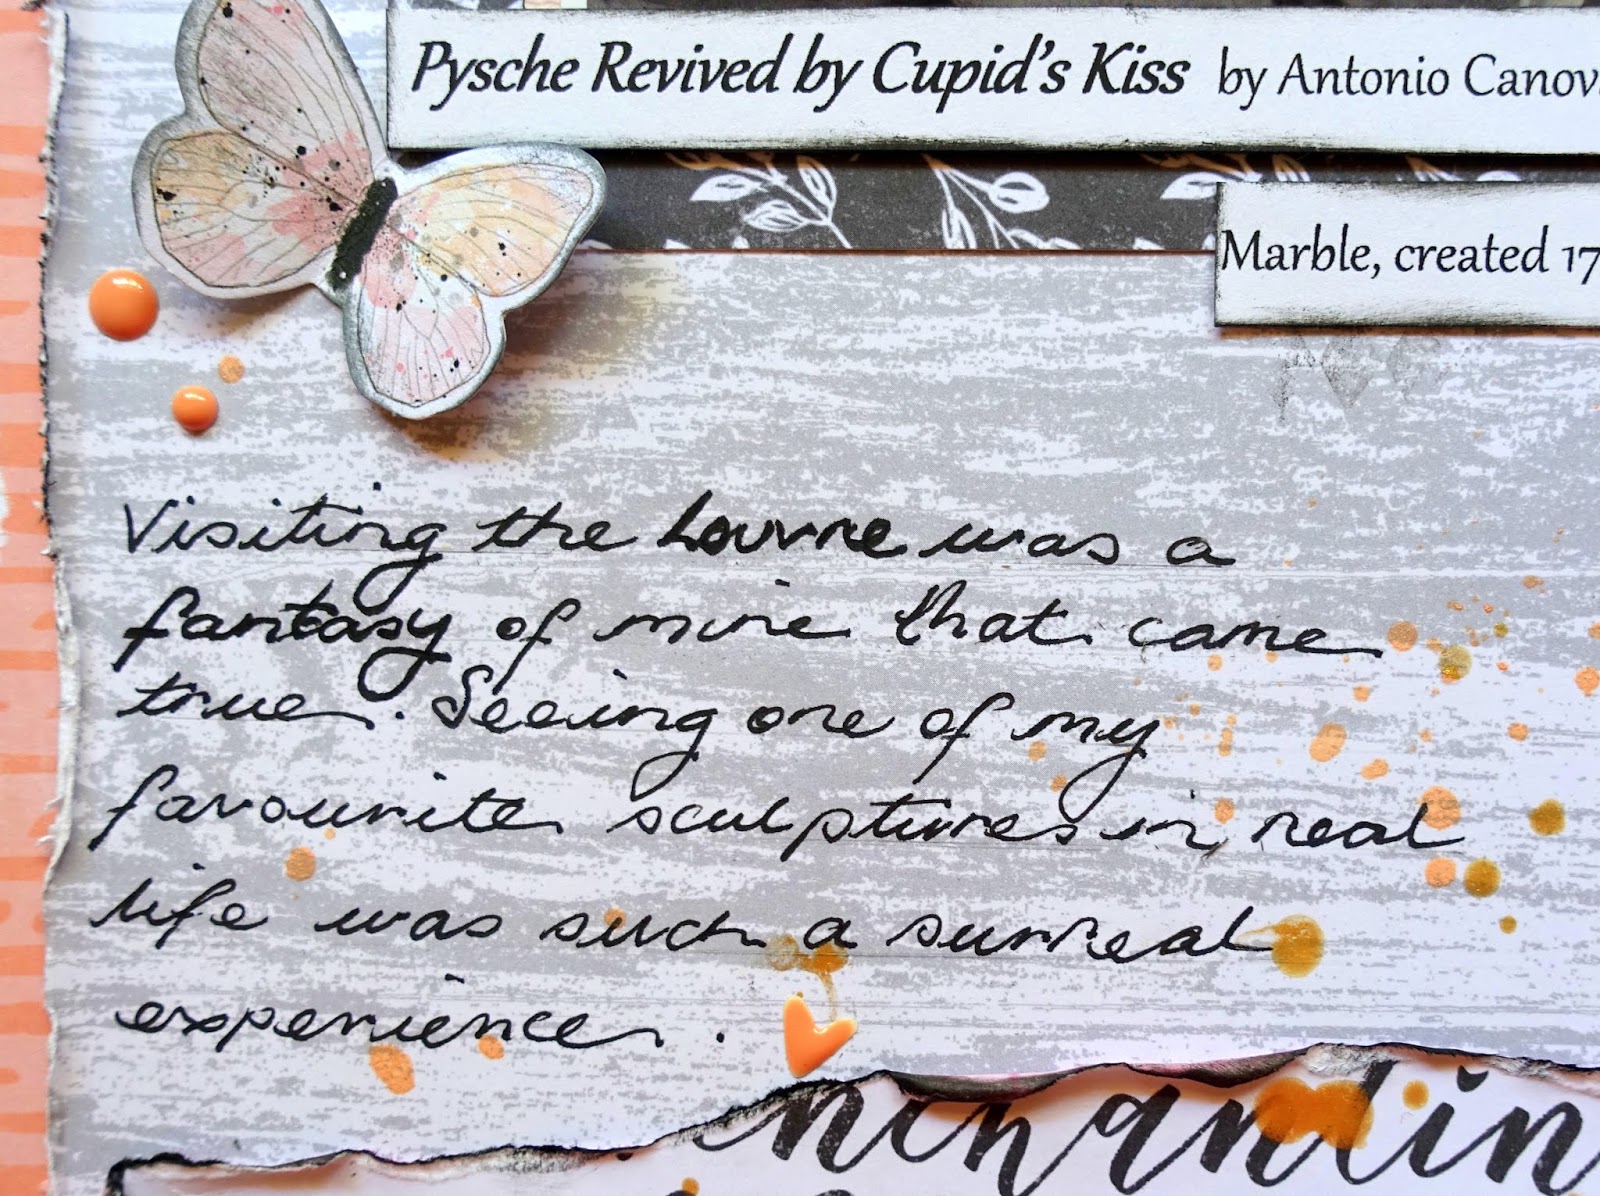 Pysche Revived by Cupid's Kiss by Antonio Canov
Marble, created 17
Visiting the Louvre was a
fantasy of mine that came
true. Seeing one of my
favourite sculptures in real
life was such a surreal
experience.